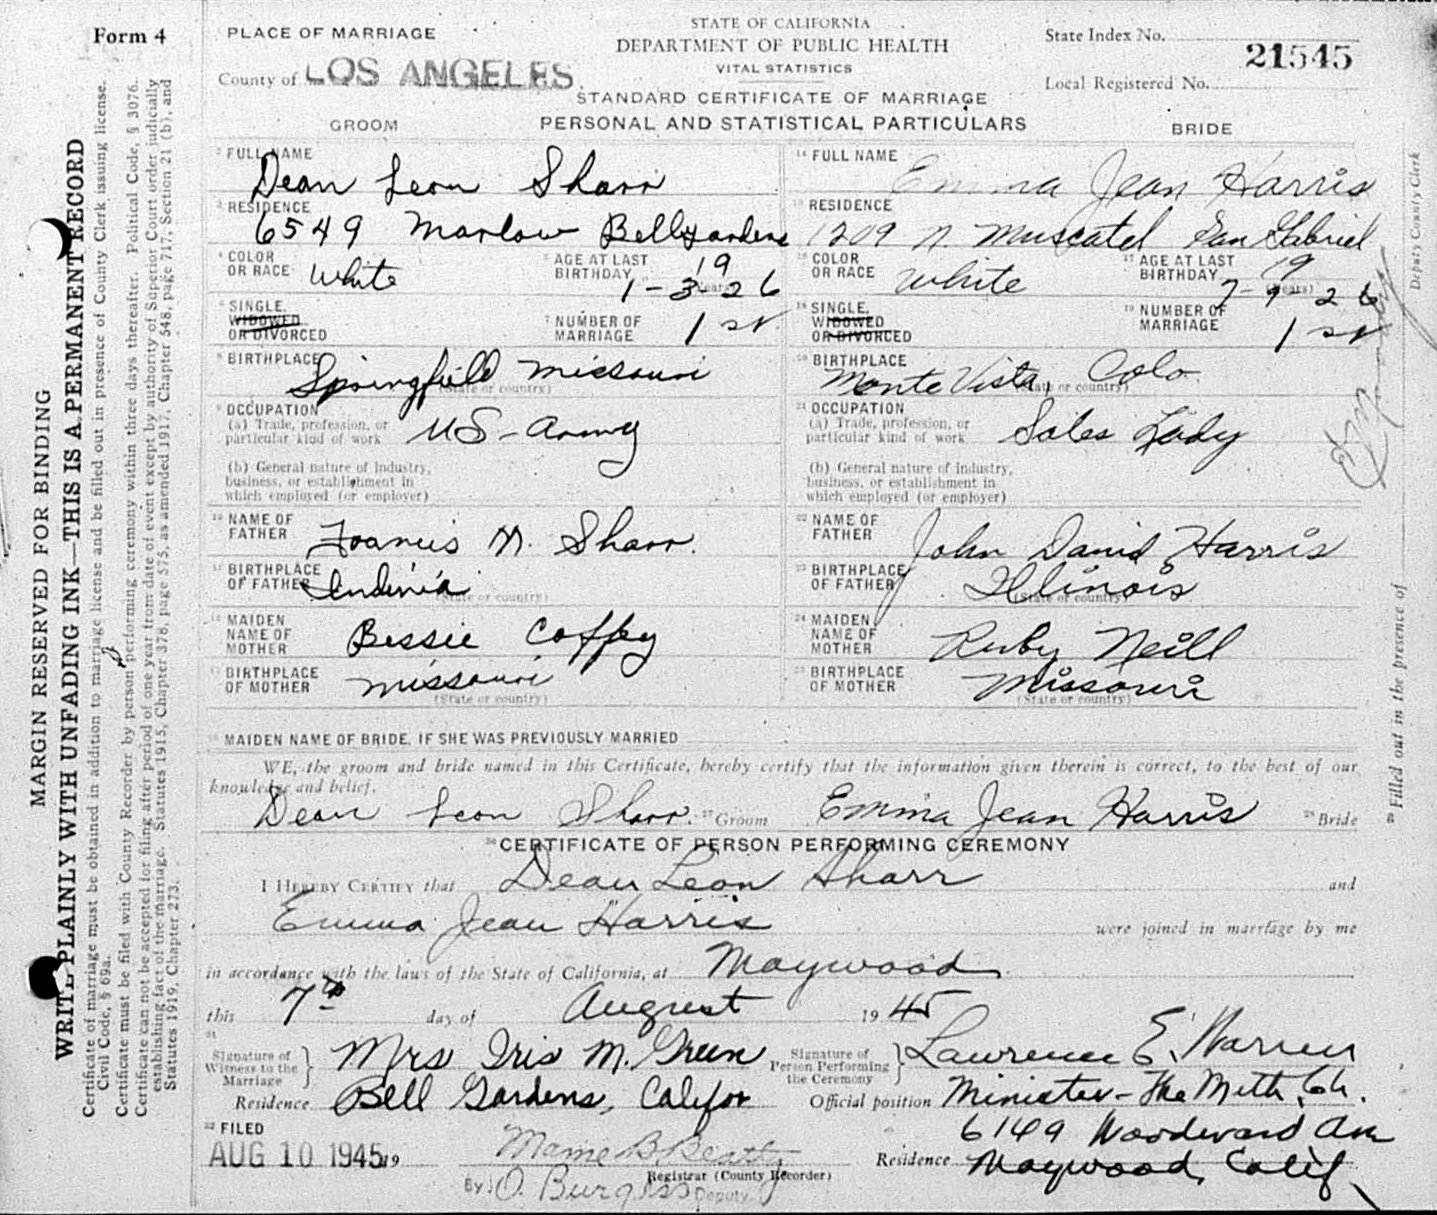 Form 4
PLACE OF MARRIAGE
County of LOS ANGELES
STATE OF CALIFORNIA
DEPARTMENT OF PUBLIC HEALTH
VITAL STATISTICS
STANDARD CERTIFICATE OF MARRIAGE
PERSONAL AND STATISTICAL PARTICULARS
State Index No.
21545
Local Registered No.
GROOM
BRIDE
FULL NAME
Dean Leon Sharr
RESIDENCE
6549 Marlow Bell Gardens
COLOR OR RACE White
AGE AT LAST BIRTHDAY 19 (Years)
1-3-26
SINGLE, WIDOWED OR DIVORCED
NUMBER OF MARRIAGE 1st
BIRTHPLACE Springfield Missouri
(State or country)
OCCUPATION
(a) Trade, profession, or particular kind of work US-Army
(b) General nature of industry, business, or establishment in which employed (or employer)
NAME OF FATHER Francis M. Sharr.
BIRTHPLACE OF FATHER Indinia
(State or country)
MAIDEN NAME OF MOTHER Bessie Coffey
BIRTHPLACE OF MOTHER Missouri
(State or country)
FULL NAME
Emma Jean Harris
RESIDENCE
1209 N. Muscatel San Gabriel
COLOR OR RACE White
AGE AT LAST BIRTHDAY 19 (Years)
7-9-26
SINGLE, WIDOWED OR DIVORCED
NUMBER OF MARRIAGE 1st
BIRTHPLACE Monte Vista Colo.
(State or country)
OCCUPATION
(a) Trade, profession, or particular kind of work Sales Lady
(b) General nature of industry, business, or establishment in which employed (or employer)
NAME OF FATHER John David Harris
BIRTHPLACE OF FATHER Illinois
(State or country)
MAIDEN NAME OF MOTHER Ruby Neill
BIRTHPLACE OF MOTHER Missouri
(State or country)
MAIDEN NAME OF BRIDE, IF SHE WAS PREVIOUSLY MARRIED
WE, the groom and bride named in this Certificate, hereby certify that the information given therein is correct, to the best of our
knowledge and belief.
Dean Leon Sharr. Groom Emma Jean Harris Bride
CERTIFICATE OF PERSON PERFORMING CEREMONY
I HEREBY CERTIFY that Dean Leon Sharr and
Emma Jean Harris were joined in marriage by me
in accordance with the laws of the State of California, at Maywood
this 7th day of August 1945
Signature of Witness to the Marriage } Mrs Iris M. Green
Residence Bell Gardens, Califor
Signature of Person Performing the Ceremony } Lawrence E. Warren
Official position Minister-The Meth. Ch.
6149 Woodward Ave
Residence Maywood, Calif.
FILED
AUG 10 1945 19
Mame B Beatty
Registrar (County Recorder)
By: O. Burgess Deputy
MARGIN RESERVED FOR BINDING
WRITE PLAINLY WITH UNFADING INK—THIS IS A PERMANENT RECORD
Certificate of marriage must be obtained in addition to marriage license and be filled out in presence of County Clerk issuing license.
Civil Code, § 69a.
Certificate must be filed with County Recorder by person performing ceremony within three days thereafter. Political Code, § 3076.
Certificate can not be accepted for filing after period of one year from date of event except by authority of Superior Court order judicially
establishing fact of the marriage. Statutes 1915, Chapter 378, page 575, as amended 1917, Chapter 548, page 717, Section 21 (b), and
Statutes 1919, Chapter 273.
Filled out in the presence of
Deputy County Clerk